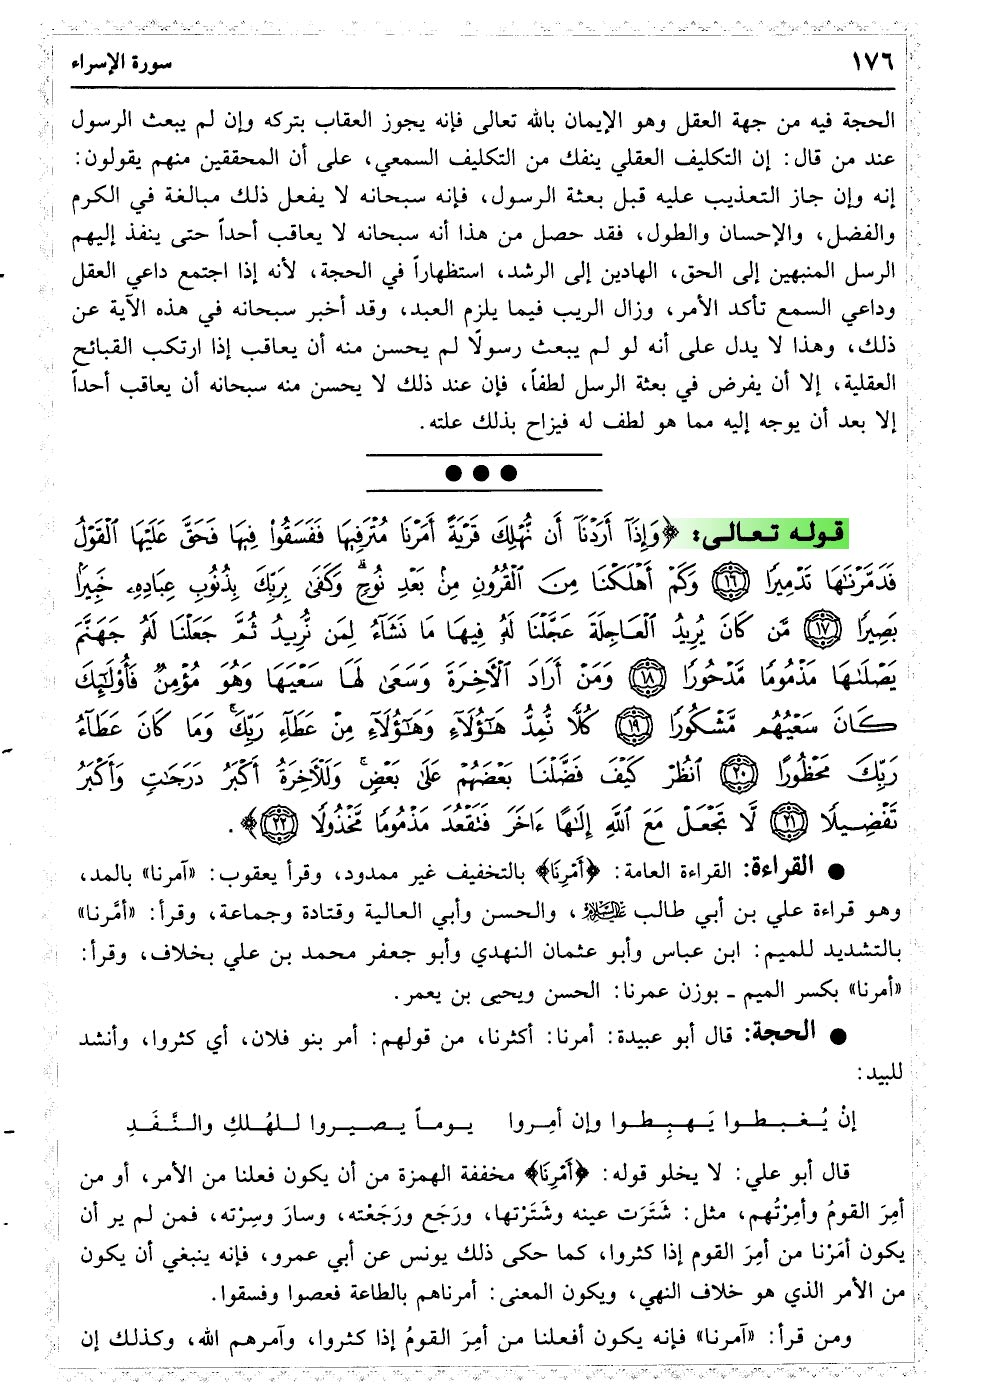 ١٧٦ سورة الإسراء
الحجة فيه من جهة العقل وهو الإيمان بالله تعالى فإنه يجوز العقاب بتركه وإن لم يبعث الرسول
عند من قال: إن التكليف العقلي ينفك من التكليف السمعي، على أن المحققين منهم يقولون:
إنه وإن جاز التعذيب عليه قبل بعثة الرسول، فإنه سبحانه لا يفعل ذلك مبالغة في الكرم
والفضل، والإحسان والطول، فقد حصل من هذا أنه سبحانه لا يعاقب أحداً حتى ينفذ إليهم
الرسل المنبهين إلى الحق، الهادين إلى الرشد، استظهاراً في الحجة، لأنه إذا اجتمع داعي العقل
وداعي السمع تأكد الأمر، وزال الريب فيما يلزم العبد، وقد أخبر سبحانه في هذه الآية عن
ذلك، وهذا لا يدل على أنه لو لم يبعث رسولًا لم يحسن منه أن يعاقب إذا ارتكب القبائح
العقلية، إلا أن يفرض في بعثة الرسل لطفاً، فإن عند ذلك لا يحسن منه سبحانه أن يعاقب أحداً
إلا بعد أن يوجه إليه مما هو لطف له فيزاح بذلك علته.
قوله تعالى: ﴿وَإِذَآ أَرَدْنَآ أَن نُّهْلِكَ قَرْيَةً أَمَرْنَا مُتْرَفِيهَا فَفَسَقُوا۟ فِيهَا فَحَقَّ عَلَيْهَا ٱلْقَوْلُ
فَدَمَّرْنَـٰهَا تَدْمِيرًا ١٦ وَكَمْ أَهْلَكْنَا مِنَ ٱلْقُرُونِ مِنۢ بَعْدِ نُوحٍ ۗ وَكَفَىٰ بِرَبِّكَ بِذُنُوبِ عِبَادِهِۦ خَبِيرًۢا
بَصِيرًا ١٧ مَّن كَانَ يُرِيدُ ٱلْعَاجِلَةَ عَجَّلْنَا لَهُۥ فِيهَا مَا نَشَآءُ لِمَن نُّرِيدُ ثُمَّ جَعَلْنَا لَهُۥ جَهَنَّمَ
يَصْلَىٰهَا مَذْمُومًا مَّدْحُورًا ١٨ وَمَنْ أَرَادَ ٱلْأَخِرَةَ وَسَعَىٰ لَهَا سَعْيَهَا وَهُوَ مُؤْمِنٌ فَأُو۟لَـٰٓئِكَ
كَانَ سَعْيُهُم مَّشْكُورًا ١٩ كُلًّا نُّمِدُّ هَـٰٓؤُلَآءِ وَهَـٰٓؤُلَآءِ مِنْ عَطَآءِ رَبِّكَ ۚ وَمَا كَانَ عَطَآءُ
رَبِّكَ مَحْظُورًا ٢٠ ٱنظُرْ كَيْفَ فَضَّلْنَا بَعْضَهُمْ عَلَىٰ بَعْضٍ ۚ وَلَلْآخِرَةُ أَكْبَرُ دَرَجَـٰتٍ وَأَكْبَرُ
تَفْضِيلًا ٢١ لَّا تَجْعَلْ مَعَ ٱللَّهِ إِلَـٰهًا ءَاخَرَ فَتَقْعُدَ مَذْمُومًا مَّخْذُولًا ٢٢﴾.
● القراءة: القراءة العامة: ﴿أَمَرْنَا﴾ بالتخفيف غير ممدود، وقرأ يعقوب: «آمرنا» بالمد،
وهو قراءة علي بن أبي طالب عليه السلام، والحسن وأبي العالية وقتادة وجماعة، وقرأ: «أمَّرنا»
بالتشديد للميم: ابن عباس وأبو عثمان النهدي وأبو جعفر محمد بن علي بخلاف، وقرأ:
«أمرنا» بكسر الميم ـ بوزن عمرنا: الحسن ويحيى بن يعمر.
● الحجة: قال أبو عبيدة: أمرنا: أكثرنا، من قولهم: أمر بنو فلان، أي كثروا، وأنشد
للبيد:
إنْ يُغـبـطـوا يَـهـبِـطـوا وإن أمِـروا يـومـاً يـصـيـروا لـلـهُـلـكِ والـنَّـفَـدِ
قال أبو علي: لا يخلو قوله: ﴿أَمَرْنَا﴾ مخففة الهمزة من أن يكون فعلنا من الأمر، أو من
أمِرَ القومُ وأمِرْتُهم، مثل: شَتَرَت عينه وشَتَرْتها، ورَجَع ورَجَعْته، وسارَ وسِرْته، فمن لم ير أن
يكون أمَرْنا من أمِرَ القوم إذا كثروا، كما حكى ذلك يونس عن أبي عمرو، فإنه ينبغي أن يكون
من الأمر الذي هو خلاف النهي، ويكون المعنى: أمرناهم بالطاعة فعصوا وفسقوا.
ومن قرأ: «آمرنا» فإنه يكون أفعلنا من أمِرَ القومُ إذا كثروا، وآمرهم الله، وكذلك إن